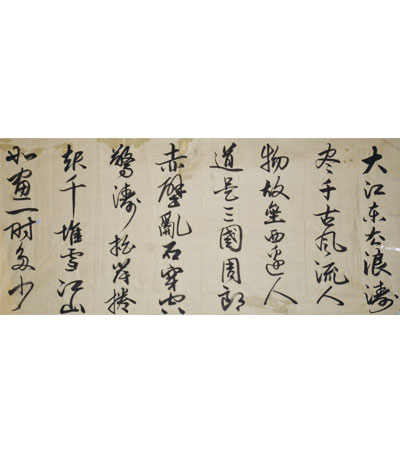 大江东去浪涛
尽千古风流人
物故垒西边人
道是三國周郎
赤壁亂石穿空
驚涛拍岸捲
起千堆雪江山
如画一时多少